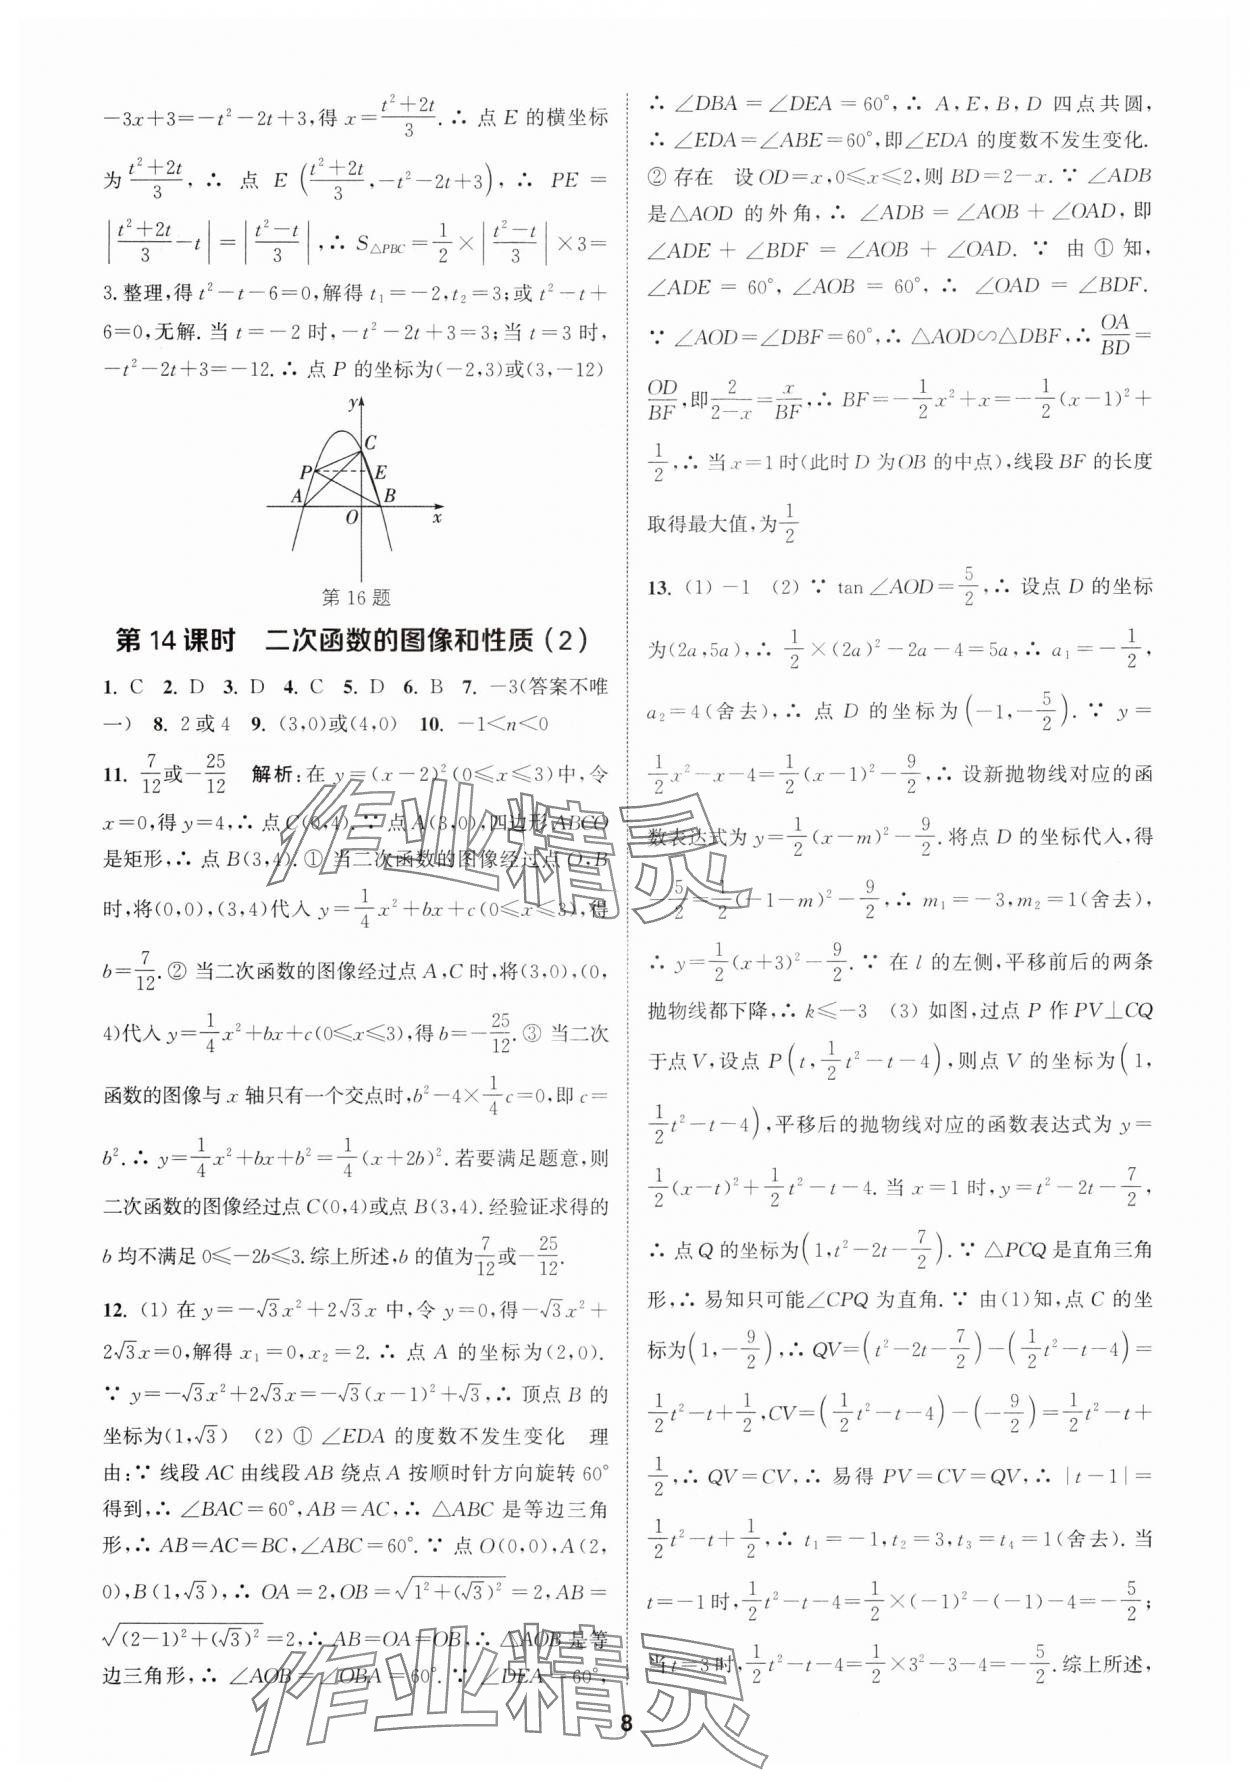 -3x+3=-t²-2t+3,得 x=(t²+2t)/3.∴ 点 E 的横坐标
为(t²+2t)/3,∴ 点 E((t²+2t)/3,-t²-2t+3),∴ PE=
|(t²+2t)/3-t|=|(t²-t)/3|,∴ S△PBC=1/2×|(t²-t)/3|×3=
3.整理,得 t²-t-6=0,解得 t₁=-2,t₂=3;或 t²-t+
6=0,无解.当 t=-2 时,-t²-2t+3=3;当 t=3 时,
-t²-2t+3=-12.∴ 点 P 的坐标为(-2,3)或(3,-12)
y
C
P E
A B
O x
第16题
第14课时 二次函数的图像和性质(2)
1. C 2. D 3. D 4. C 5. D 6. B 7. -3(答案不唯
一) 8. 2或4 9. (3,0)或(4,0) 10. -1<n<0
11. 7/12或-25/12 解析:在 y=(x-2)²(0≤x≤3)中,令
x=0,得 y=4,∴ 点 C(0,4).∵ 点 A(3,0),四边形 ABCO
是矩形,∴ 点 B(3,4).① 当二次函数的图像经过点 O,B
时,将(0,0),(3,4)代入 y=1/4x²+bx+c(0≤x≤3),得
b=7/12.② 当二次函数的图像经过点 A,C 时,将(3,0),(0,
4)代入 y=1/4x²+bx+c(0≤x≤3),得 b=-25/12.③ 当二次
函数的图像与 x 轴只有一个交点时,b²-4×1/4c=0,即 c=
b².∴ y=1/4x²+bx+b²=1/4(x+2b)².若要满足题意,则
二次函数的图像经过点 C(0,4)或点 B(3,4).经验证求得的
b 均不满足 0≤-2b≤3.综上所述,b 的值为7/12或-25/12.
12. (1) 在 y=-√3x²+2√3x 中,令 y=0,得-√3x²+
2√3x=0,解得 x₁=0,x₂=2.∴ 点 A 的坐标为(2,0).
∵ y=-√3x²+2√3x=-√3(x-1)²+√3,∴ 顶点 B 的
坐标为(1,√3) (2) ① ∠EDA 的度数不发生变化 理
由:∵ 线段 AC 由线段 AB 绕点 A 按顺时针方向旋转 60°
得到,∴ ∠BAC=60°,AB=AC,∴ △ABC 是等边三角
形,∴ AB=AC=BC,∠ABC=60°.∵ 点 O(0,0),A(2,
0),B(1,√3),∴ OA=2,OB=√(1²+(√3)²)=2,AB=
√((2-1)²+(√3)²)=2,∴ AB=OA=OB,∴ △AOB 是等
边三角形,∴ ∠AOB=∠OBA=60°.∵ ∠DEA=60°,
∴ ∠DBA=∠DEA=60°,∴ A,E,B,D 四点共圆,
∴ ∠EDA=∠ABE=60°,即∠EDA 的度数不发生变化.
② 存在 设 OD=x,0≤x≤2,则 BD=2-x.∵ ∠ADB
是△AOD 的外角,∴ ∠ADB=∠AOB+∠OAD,即
∠ADE+∠BDF=∠AOB+∠OAD.∵ 由①知,
∠ADE=60°,∠AOB=60°,∴ ∠OAD=∠BDF.
∵ ∠AOD=∠DBF=60°,∴ △AOD∽△DBF,∴ OA/BD=
OD/BF,即2/(2-x)=x/BF,∴ BF=-1/2x²+x=-1/2(x-1)²+
1/2,∴ 当 x=1 时(此时 D 为OB 的中点),线段 BF 的长度
取得最大值,为1/2
13. (1) -1 (2) ∵ tan∠AOD=5/2,∴ 设点 D 的坐标
为(2a,5a),∴ 1/2×(2a)²-2a-4=5a,∴ a₁=-1/2,
a₂=4(舍去),∴ 点 D 的坐标为(-1,-5/2).∵ y=
1/2x²-x-4=1/2(x-1)²-9/2,∴ 设新抛物线对应的函
数表达式为 y=1/2(x-m)²-9/2.将点 D 的坐标代入,得
-5/2=1/2(-1-m)²-9/2,∴ m₁=-3,m₂=1(舍去),
∴ y=1/2(x+3)²-9/2.∵ 在 l 的左侧,平移前后的两条
抛物线都下降,∴ k≤-3 (3) 如图,过点 P 作 PV⊥CQ
于点 V,设点 P(t,1/2t²-t-4),则点 V 的坐标为(1,
1/2t²-t-4),平移后的抛物线对应的函数表达式为 y=
1/2(x-t)²+1/2t²-t-4.当 x=1 时,y=t²-2t-7/2,
∴ 点 Q 的坐标为(1,t²-2t-7/2).∵ △PCQ 是直角三角
形,∴ 易知只可能∠CPQ 为直角.∵ 由(1)知,点 C 的坐
标为(1,-9/2),∴ QV=(t²-2t-7/2)-(1/2t²-t-4)=
1/2t²-t+1/2,CV=(1/2t²-t-4)-(-9/2)=1/2t²-t+
1/2,∴ QV=CV,∴ 易得 PV=CV=QV,∴ |t-1|=
1/2t²-t+1/2,∴ t₁=-1,t₂=3,t₃=t₄=1(舍去).当
t=-1时,1/2t²-t-4=1/2×(-1)²-(-1)-4=-5/2;
当 t=3 时,1/2t²-t-4=1/2×3²-3-4=-5/2.综上所述,
8
作业精灵
作业精灵